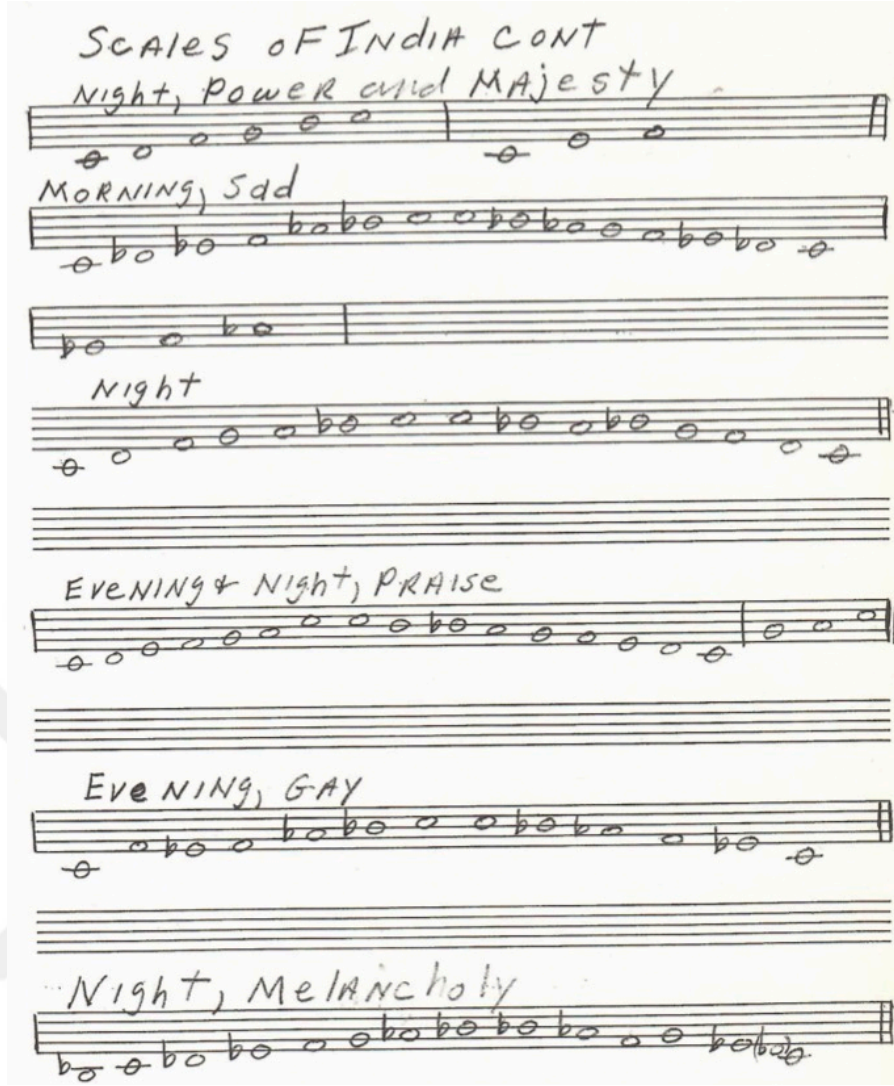 Scales of India Cont
Night, Power and Majesty
Morning, Sad
Night
Evening & Night, Praise
Evening, Gay
Night, Melancholy